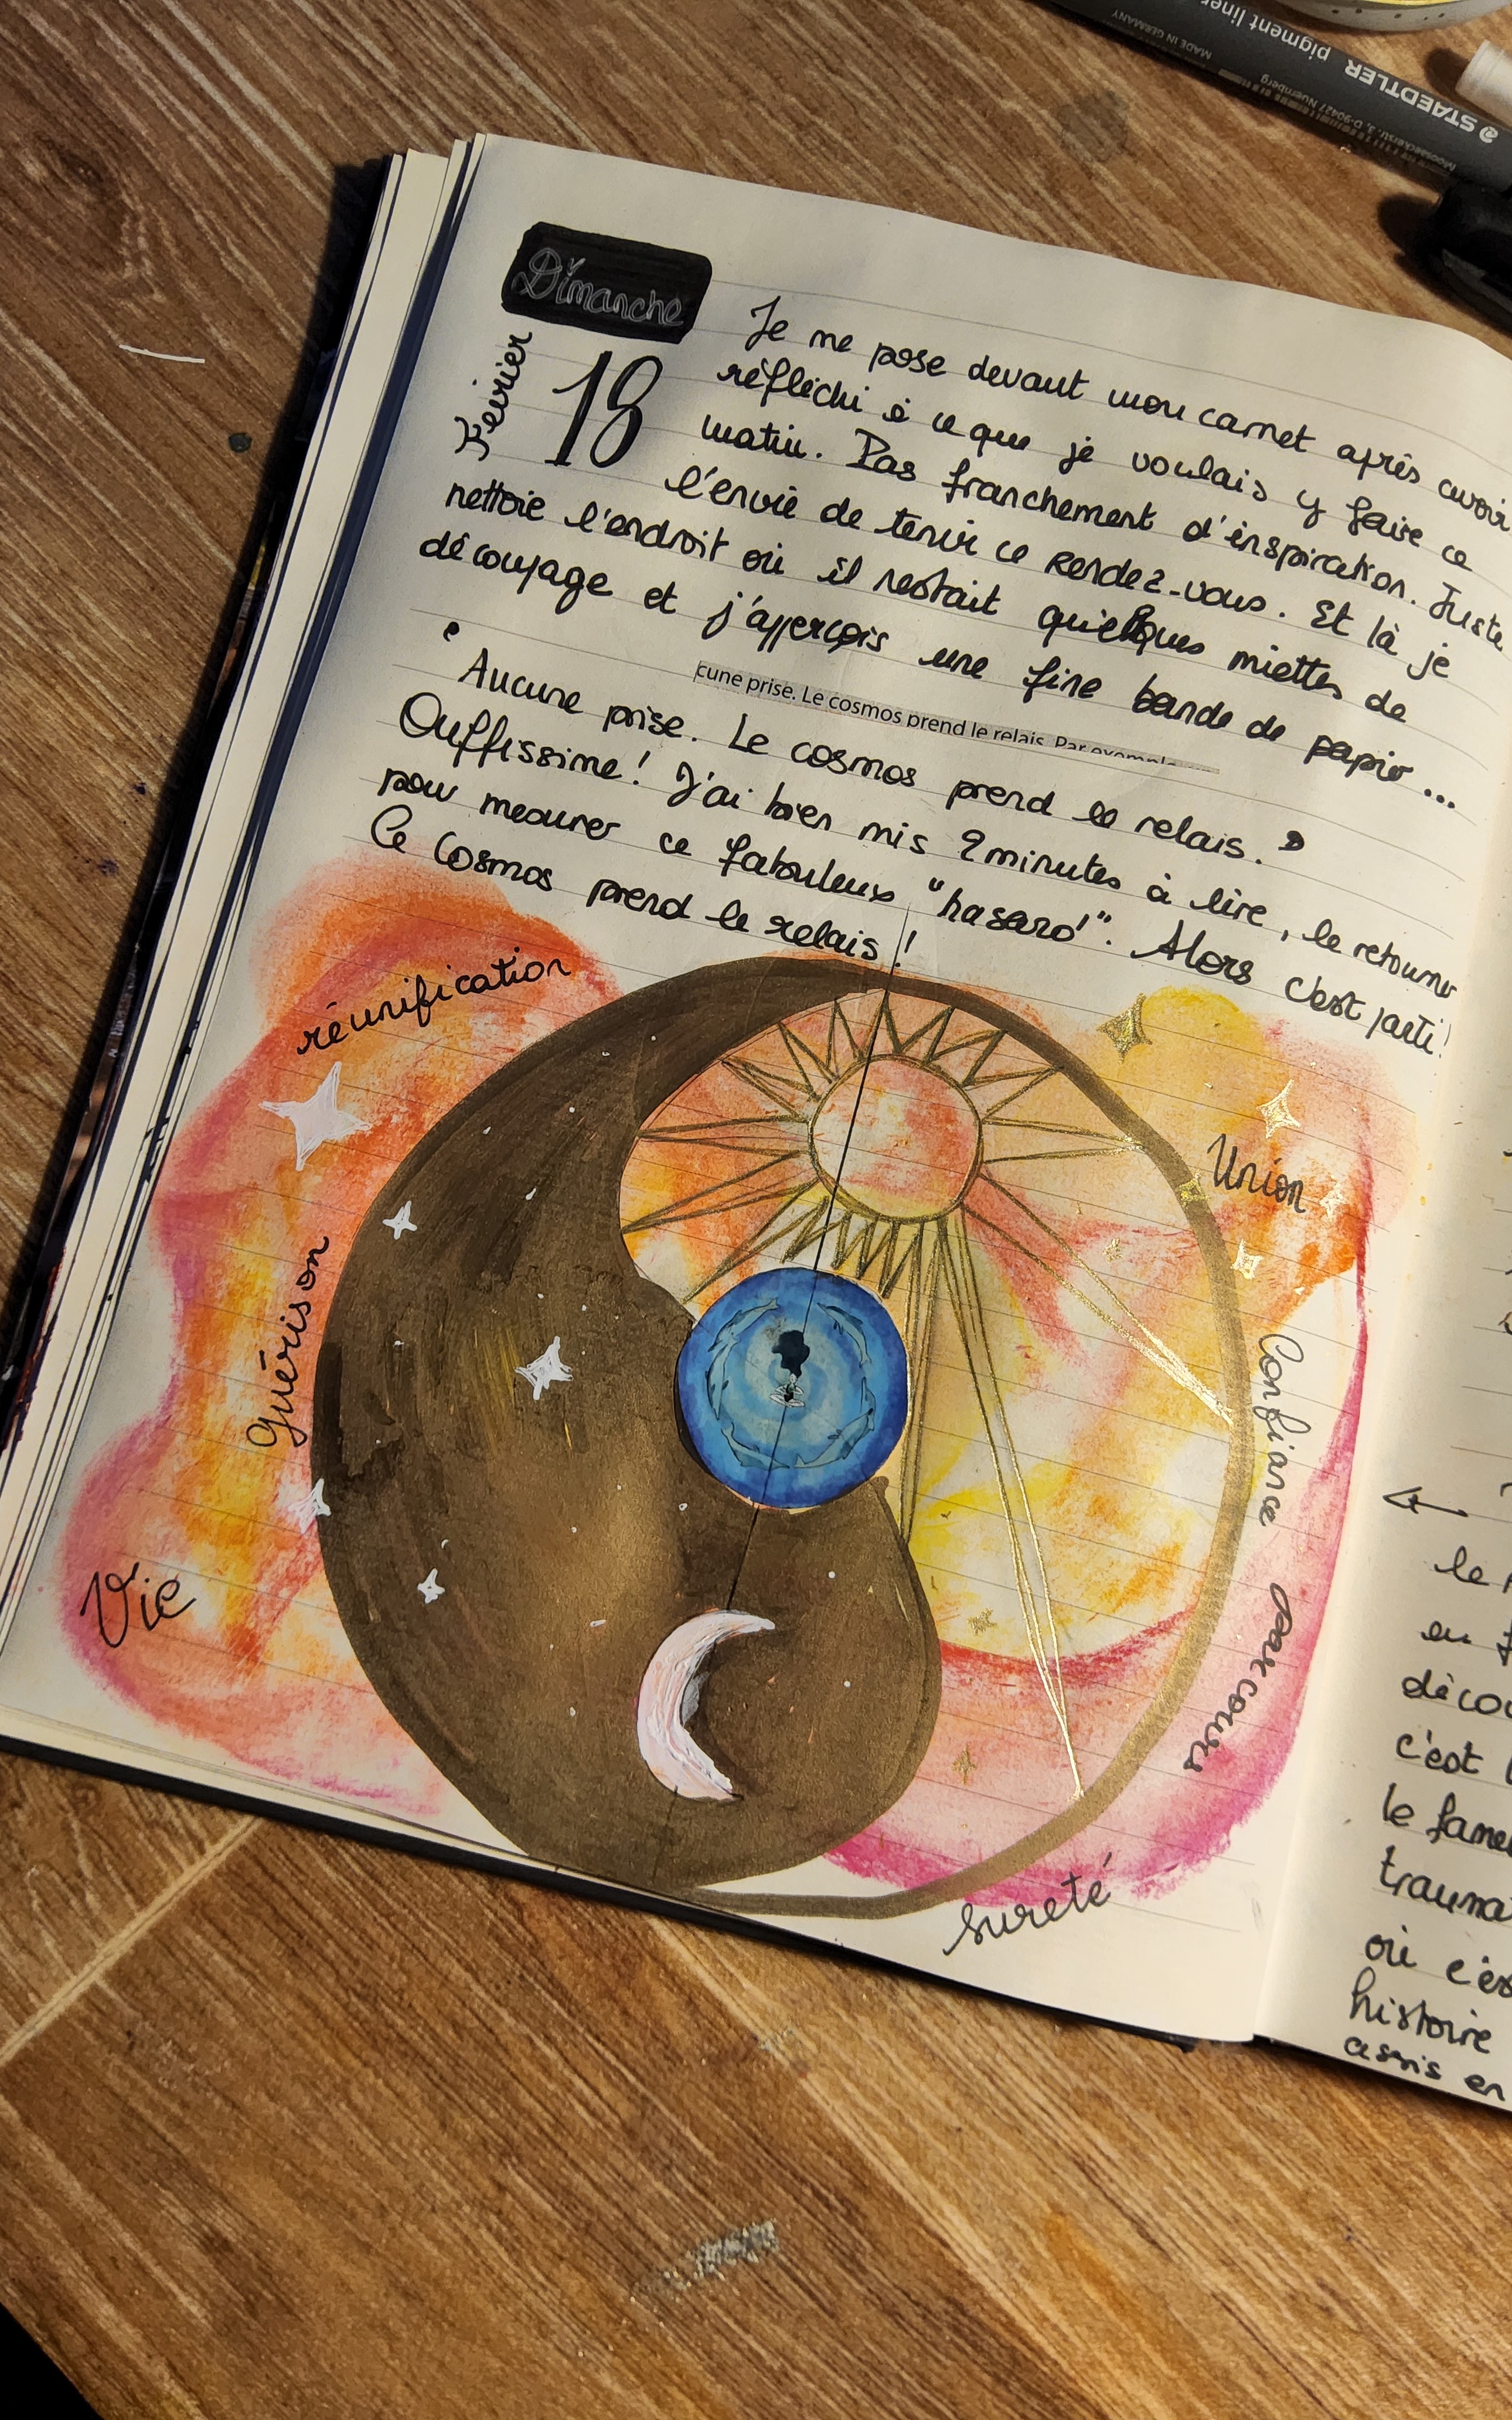 STAEDTLER pigment liner
MADE IN GERMANY
Moosaeckerstr. 3, D-90427 Nuernberg
Dimanche
Février
18
Je me pose devant mon carnet après avoir
réfléchi à ce que je voulais y faire ce
matin. Pas franchement d'inspiration. Juste
l'envie de tenir ce rendez-vous. Et là je
nettoie l'endroit où il restait quielques miettes de
découpage et j'apperçois une fine bande de papier...
cune prise. Le cosmos prend le relais. Par exemple
" Aucune prise. Le cosmos prend le relais. "
Ouffissime! J'ai bien mis 2 minutes à lire, le retourner
pour mesurer ce fabouleux "hasard". Alors c'est parti!
Le Cosmos prend le relais!
réunification
Union
Guérison
Confiance
Vie
parcours
sureté
le
en
déco
c'est
le fame
trauma
où c'es
histoire
assis en